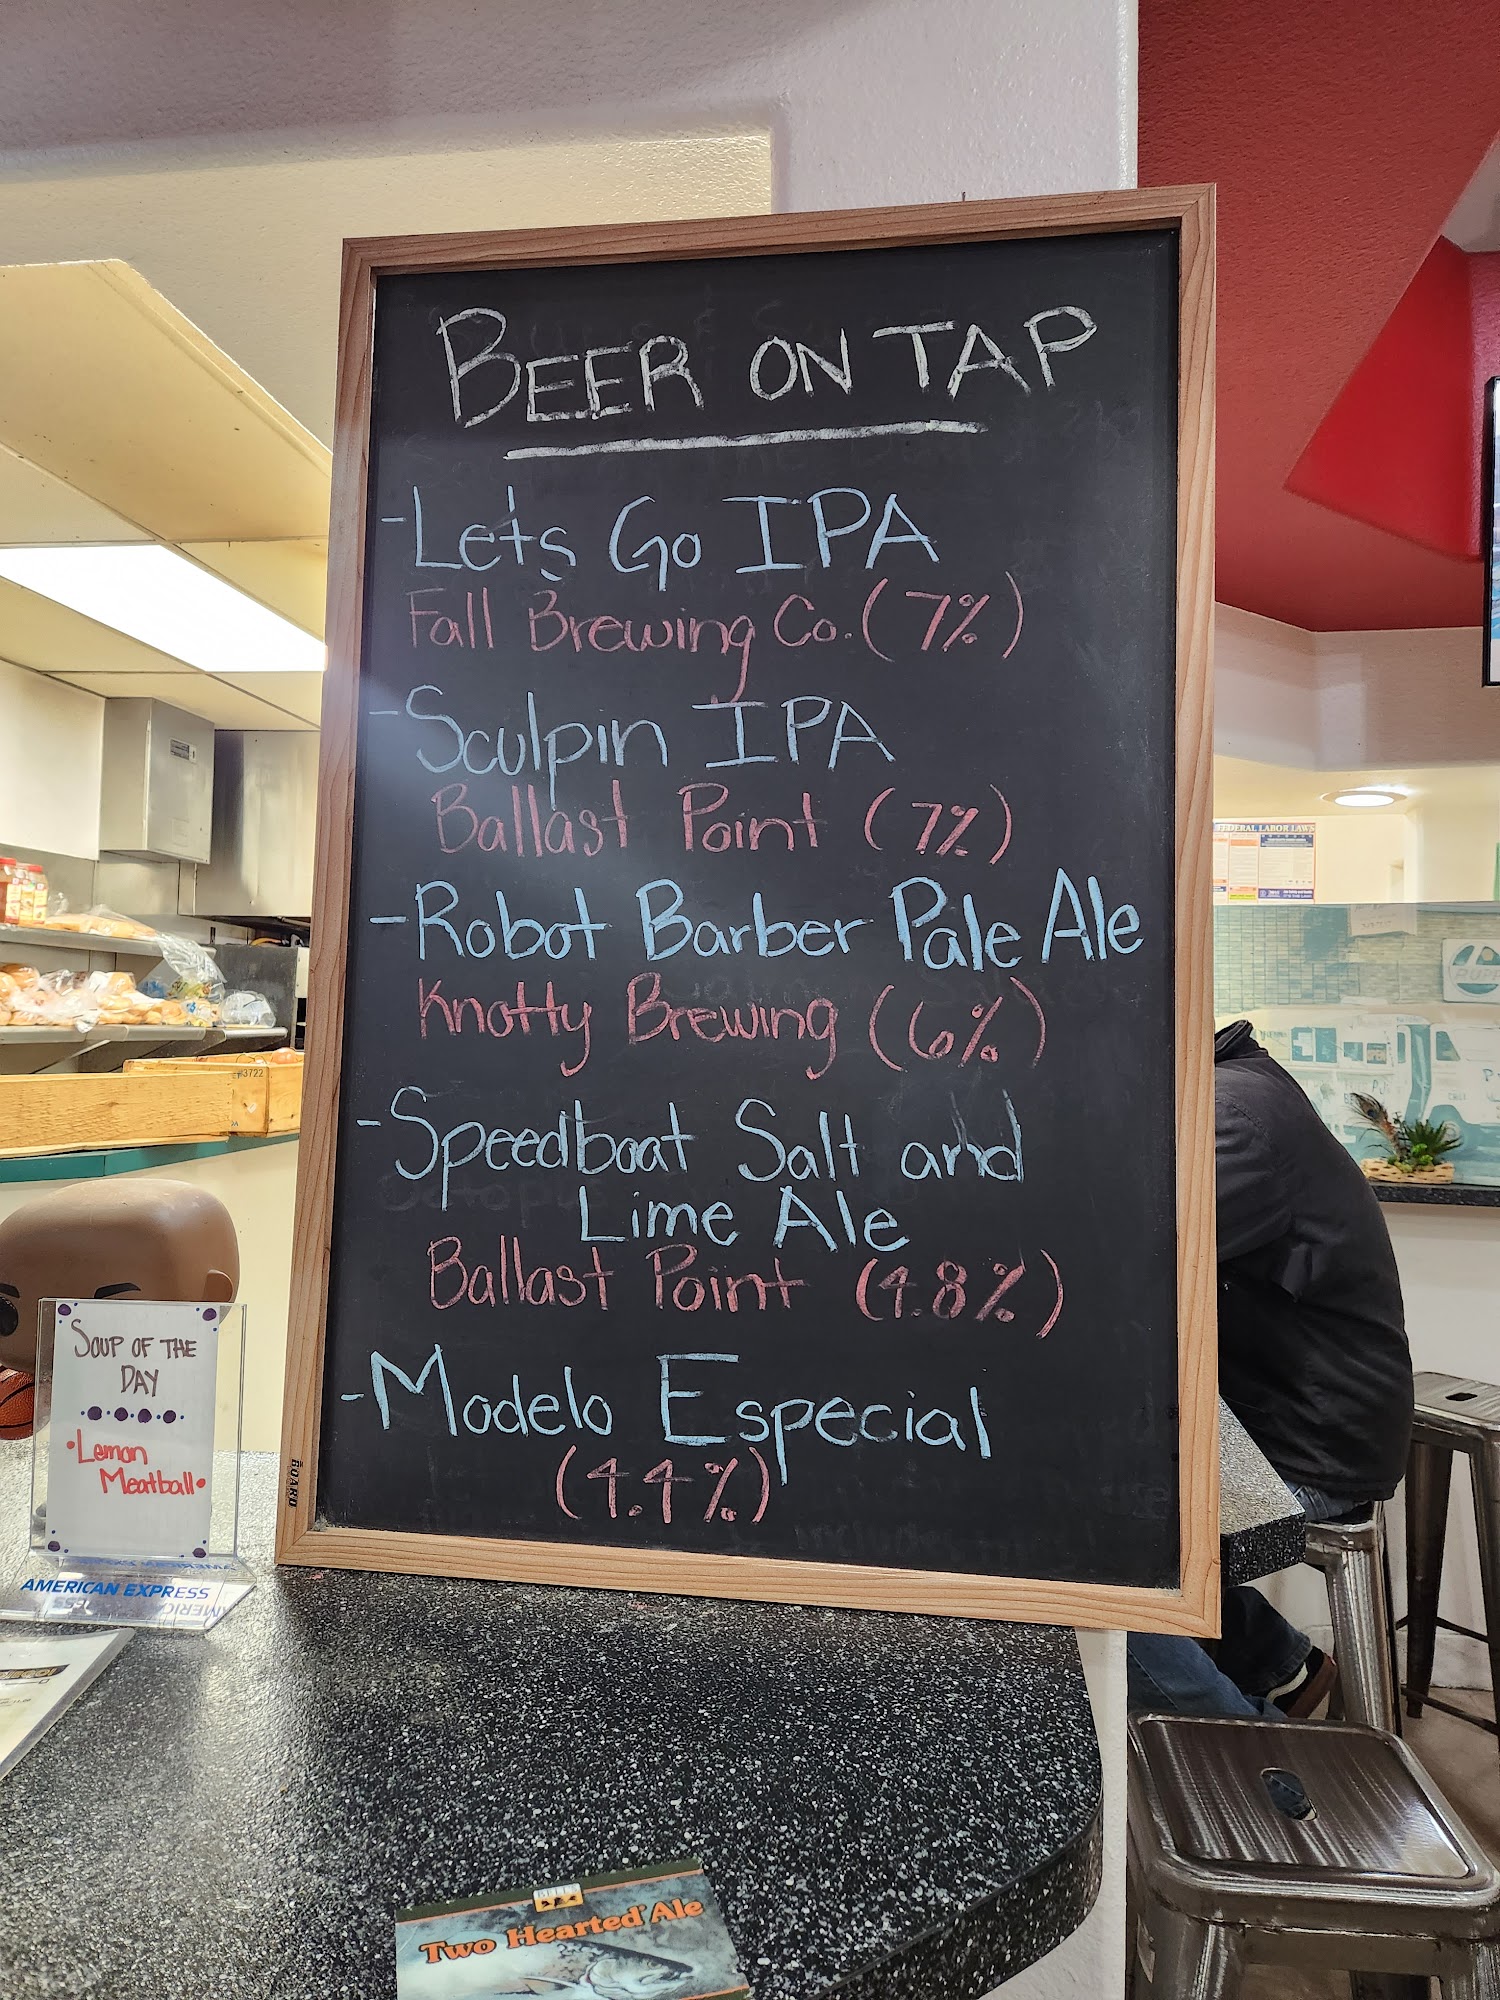 BEER ON TAP
-Let's Go IPA
Fall Brewing Co. (7%)
-Sculpin IPA
Ballast Point (7%)
-Robot Barber Pale Ale
Knotty Brewing (6%)
-Speedboat Salt and
Lime Ale
Ballast Point (4.8%)
-Modelo Especial
(4.4%)
BOARD
SOUP OF THE
DAY
•Lemon
Meatball•
AMERICAN EXPRESS
#3722
FEDERAL LABOR LAWS
BELL'S
Two Hearted Ale